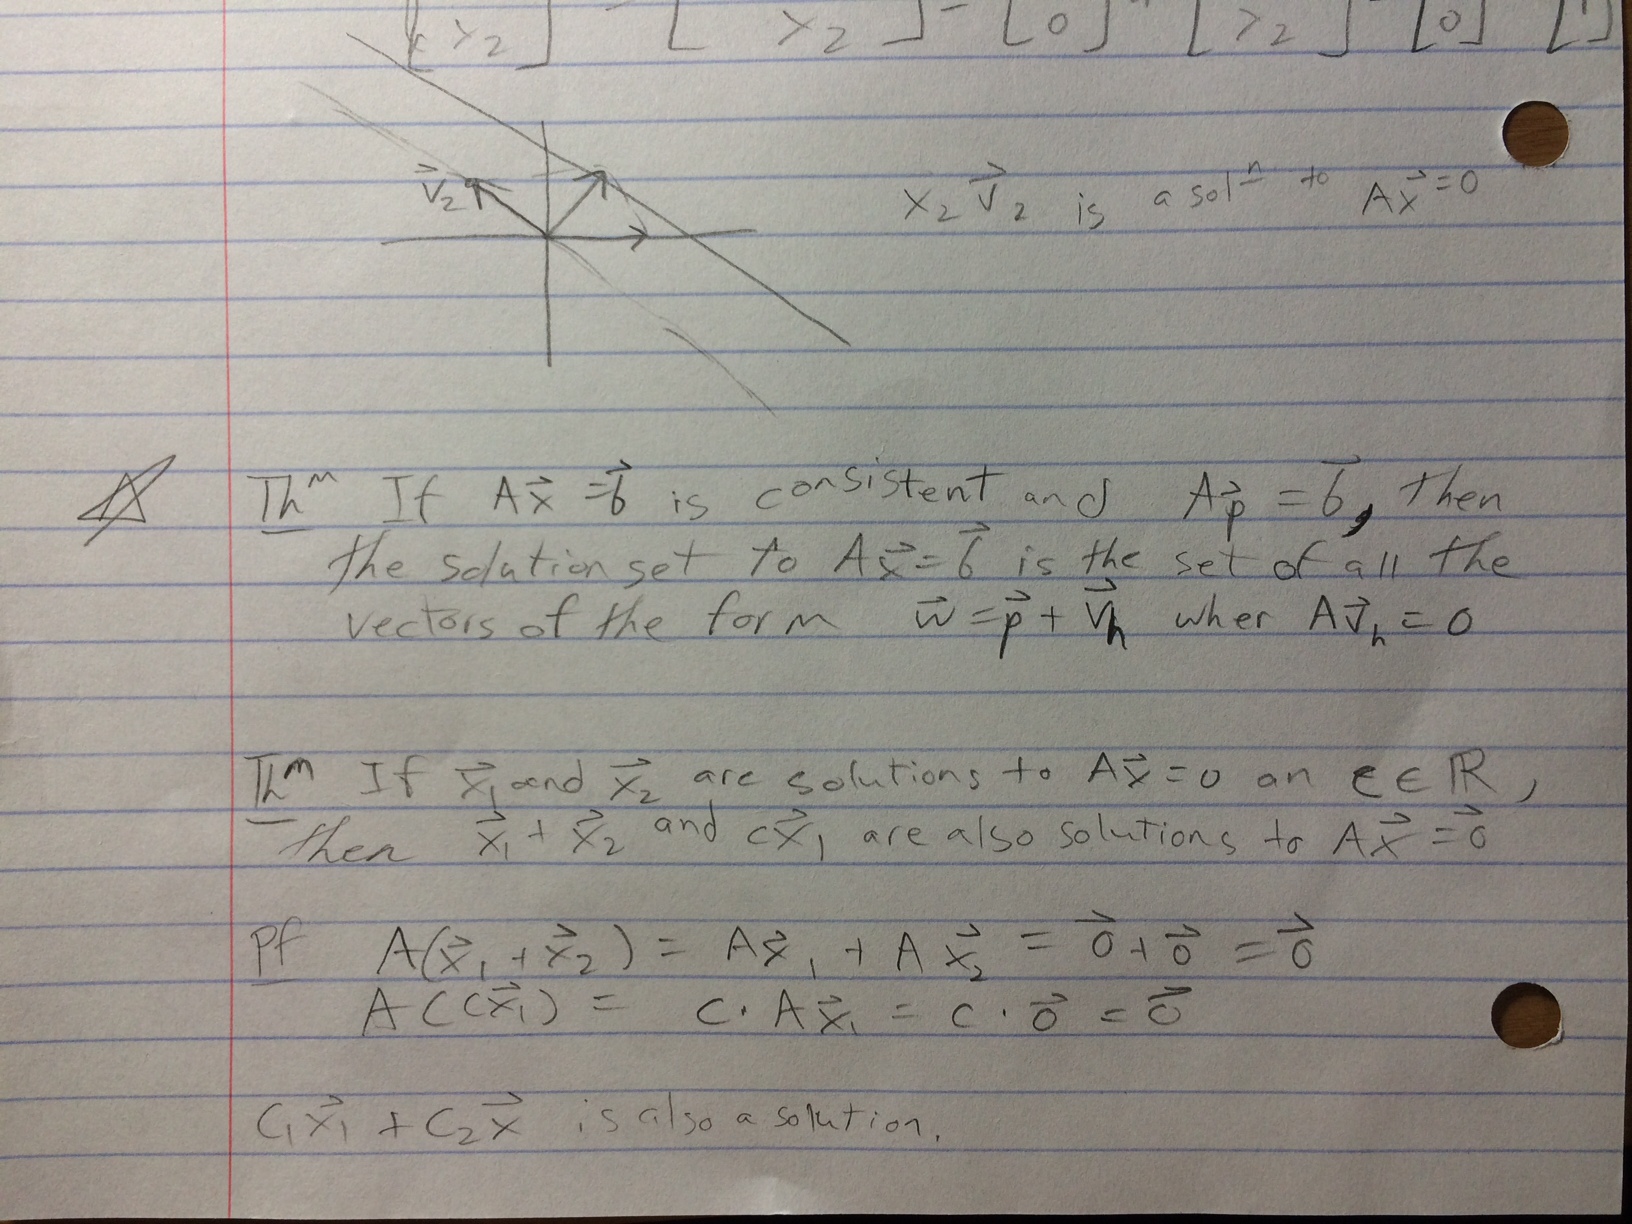 [x₂] = [ x₂] = [0] + [x₂] = [0] [1]
v⃗₂
x₂ v⃗₂ is a solⁿ to Ax⃗ = 0
Thᵐ If Ax⃗ = b⃗ is consistent and Ap⃗ = b⃗, then
the solution set to Ax⃗ = b⃗ is the set of all the
vectors of the form w⃗ = p⃗ + v⃗ₕ wher Av⃗ₕ = 0
Thᵐ If x⃗₁ and x⃗₂ are solutions to Ax⃗ = 0 an c ∈ ℝ,
then x⃗₁ + x⃗₂ and cx⃗₁ are also solutions to Ax⃗ = 0⃗
Pf A(x⃗₁ + x⃗₂) = Ax⃗₁ + Ax⃗₂ = 0⃗ + 0⃗ = 0⃗
A(cx⃗₁) = c · Ax⃗₁ = c · 0⃗ = 0⃗
c₁x⃗₁ + c₂x⃗ is also a solution.